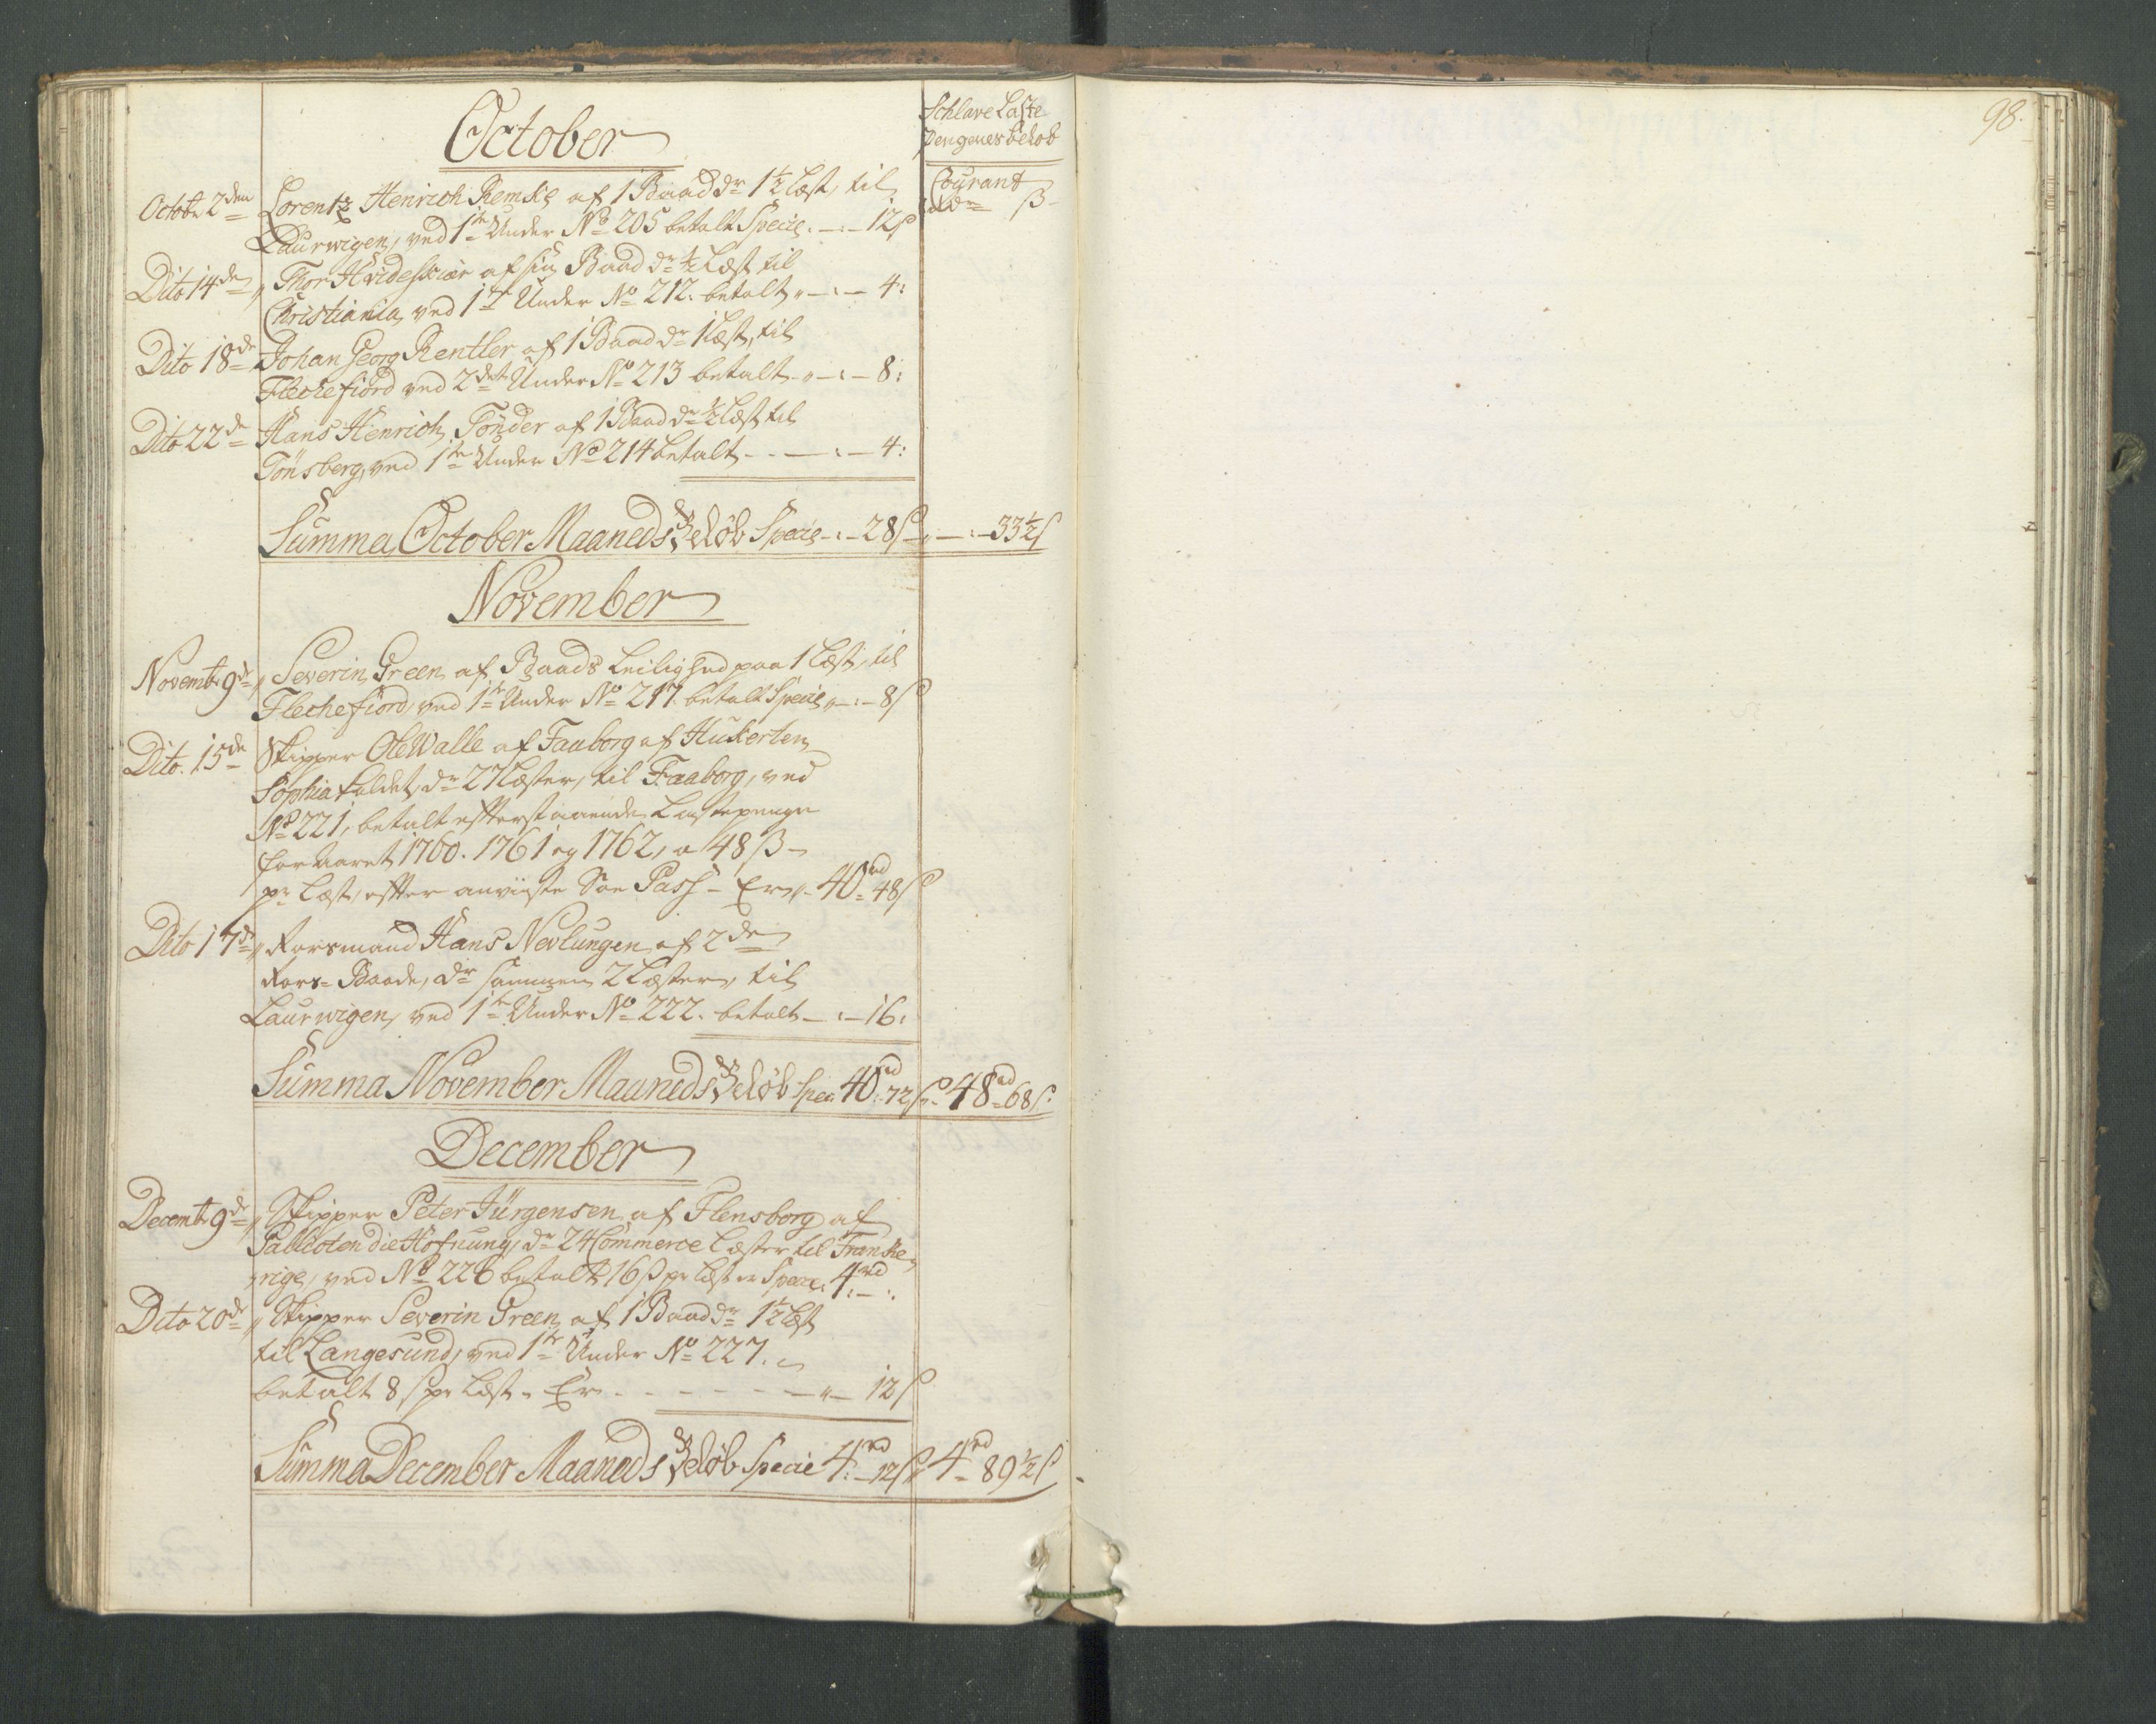 October
Schlave Laste
Pengenes beløb
Courant
rdr ß
Octobr 2den Lorentz Henrich Remke af 1 Baad dr 1½ Læst, til
Laurwigen, ved 1te Under No 205 betalt Specie. - : - 12 ß
Dito 14de Thor Hvideskiær af sin Baad dr ½ Læst til
Christiania, ved 1te Under No 212. betalt - : - 4 :
Dito 18de Johan Georg Rentler af 1 Baad dr 1 Læst, til
Flechefiord ved 2det Under No 213 betalt - : - 8 :
Dito 22de Hans Henrich Tønder af 1 Baad dr ½ Læst til
Tønsberg, ved 1te Under No 214 betalt - - - : - 4 :
Summa October Maaneds Beløb Specie - : - 28 ß - : - 33½ ß
November
Novembr 9de Severin Green af Baads Leilighed paa 1 Læst, til
Flechefiord, ved 1te Under No 217. betalt Specie - : - 8 ß
Dito 15de Skipper Ole Walle af Faaborg af Hukerten
Sophia kaldet, dr 27 Læster, til Faaborg, ved
No 221, betalt efterstaaende Lastepenge
for Aaret 1760. 1761 og 1762, a 48 ß
pr Læst, efter anviiste Søe Pass - Er - 40rd 48 ß
Dito 17de Rorsmand Hans Nevlungen af 2de
Rors- Baade, dr sammen 2 Læster, til
Laurwigen, ved 1te Under No 222. betalt - : - 16 :
Summa November Maaneds Beløb Spec: 40rd 72 ß 48rd 68 ß
December
Decembr 9de Skipper Peter Jürgensen af Flensborg af
Pakkoten die Hofnung, dr 24 Commerce Læster til Franke-
rige, ved No 226 betalt 16 ß pr Læst er Specie 4rd : - :
Dito 20de Skipper Severin Green af 1 Baad dr 1½ Læst
til Langesund, ved 1te Under No 227.
betalt 8 ß pr Læst - Er - - - - - - 12 ß
Summa December Maaneds Beløb Specie 4rd - 12 ß 4rd 89½ ß
98.